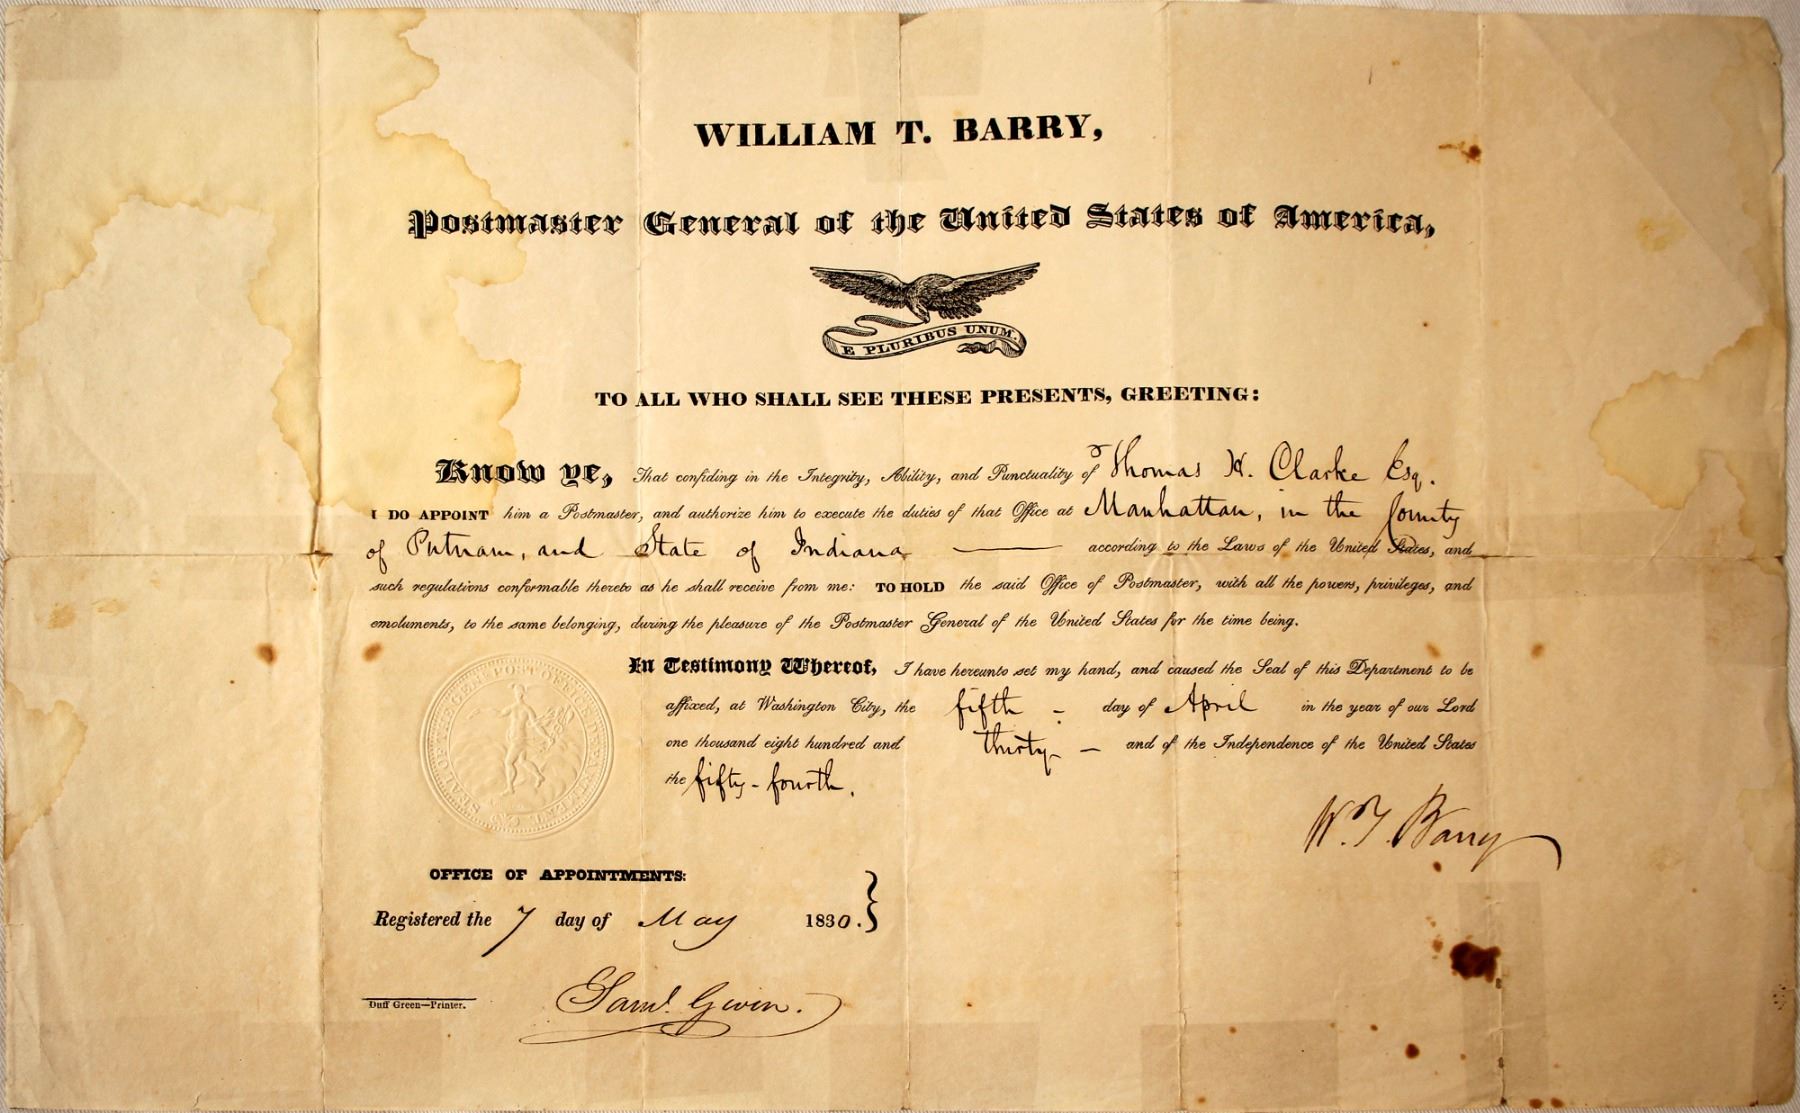 WILLIAM T. BARRY,
Postmaster General of the United States of America,
E PLURIBUS UNUM.
TO ALL WHO SHALL SEE THESE PRESENTS, GREETING:
Know ye, That confiding in the Integrity, Ability, and Punctuality of Thomas H. Clarke Esq.
I DO APPOINT him a Postmaster, and authorize him to execute the duties of that Office at Manhattan, in the County
of Putnam, and State of Indiana — according to the Laws of the United States, and
such regulations conformable thereto as he shall receive from me: TO HOLD the said Office of Postmaster, with all the powers, privileges, and
emoluments, to the same belonging, during the pleasure of the Postmaster General of the United States for the time being.
In Testimony Whereof, I have hereunto set my hand, and caused the Seal of this Department to be
affixed, at Washington City, the fifth - day of April in the year of our Lord
one thousand eight hundred and thirty - and of the Independence of the United States
the fifty-fourth.
SEAL OF THE GEN. POST OFFICE DEPARTMENT U.S.
W. T. Barry
OFFICE OF APPOINTMENTS:
Registered the 7 day of May 1830.
Saml. Gwin.
Duff Green—Printer.